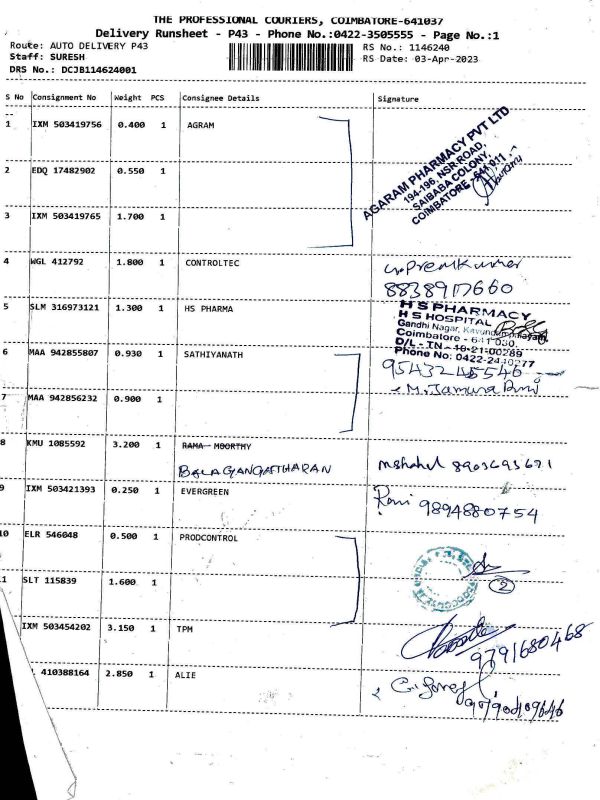 THE PROFESSIONAL COURIERS, COIMBATORE-641037
Delivery Runsheet - P43 - Phone No.:0422-3505555 - Page No.:1
Route: AUTO DELIVERY P43 RS No.: 1146240
Staff: SURESH RS Date: 03-Apr-2023
DRS No.: DCJB114624001
S No Consignment No Weight PCS Consignee Details Signature
1 IXM 503419756 0.400 1 AGRAM
AGARAM PHARMACY PVT LTD
194-196, NSR ROAD,
SAIBABA COLONY,
COIMBATORE - 641 011
2 EDQ 17482902 0.550 1
3 IXM 503419765 1.700 1
4 WGL 412792 1.800 1 CONTROLTEC Premkumar
8838917660
5 SLM 316973121 1.300 1 HS PHARMA
H S PHARMACY
H S HOSPITAL
Gandhi Nagar,
Coimbatore - 641 030.
D/L - TN - 16-21-00289
Phone No: 0422-2440277
6 MAA 942855807 0.930 1 SATHIYANATH 9543245546
M. Jamuna Rani
7 MAA 942856232 0.900 1
8 KMU 1085592 3.200 1 RAMA MOORTHY
BALAGANGATHARAN 8903693671
9 IXM 503421393 0.250 1 EVERGREEN 9894880754
10 ELR 546048 0.500 1 PRODCONTROL
2
1 SLT 115839 1.600 1
IXM 503454202 3.150 1 TPM 9791680468
410388164 2.850 1 ALIE